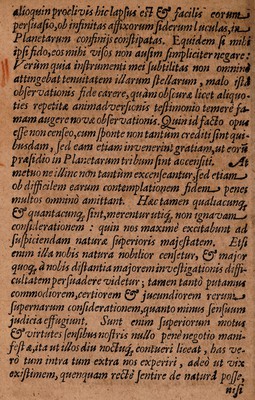 alioquin proclivis hic lapsus est & facilis eorum
persuasio, ob infinitas affixorum siderum luculas, in
Planetarum confiniis constipatas. Equidem si mihi
ipsi fido, eos mihi visos non ausim simpliciter negare:
Verùm quia instrumenti mei subtilitas non omninò
attingebat tenuitatem illarum stellarum, malo istâ
observationis fide carere, quàm obscuræ licet aliquo-
ties repetitæ animadversionis testimonio temerè fa-
mam augere novæ observationis. Quin id facto opus
esse non censeo, cum sponte non tantum crediti sint qui-
busdam, sed eam etiam invenerint gratiam, ut eorū
præsidio in Planetarum tribum sint accensiti. At
metuo ne illinc non tantùm excenseantur, sed etiam
ob difficilem earum contemplationem fidem penes
multos omninò amittant. Hæc tamen qualiacunq;
& quantacunq; sint, merentur utiq; non ignavam
considerationem : quin nos maximè excitabunt ad
suspiciendam naturæ superioris majestatem. Etsi
enim illa nobis natura nobilior censetur, & major
quoq; à nobis distantia majorem investigationis diffi-
cultatem persuadere videtur; tamen tantò putamus
commodiorem, certiorem & jucundiorem rerum
supernarum considerationem, quanto minus sensuum
judicia effugiunt. Sunt enim superiorum motus
& virtutes sensibus nostris nullo penè negotio mani-
festæ, ita ut illos diu noctuq; contueri liceat, has ve-
rò tum intra tum extra nos experiri, adeò ut vix
existimem, quenquam rectè sentire de naturâ posse,
nisi